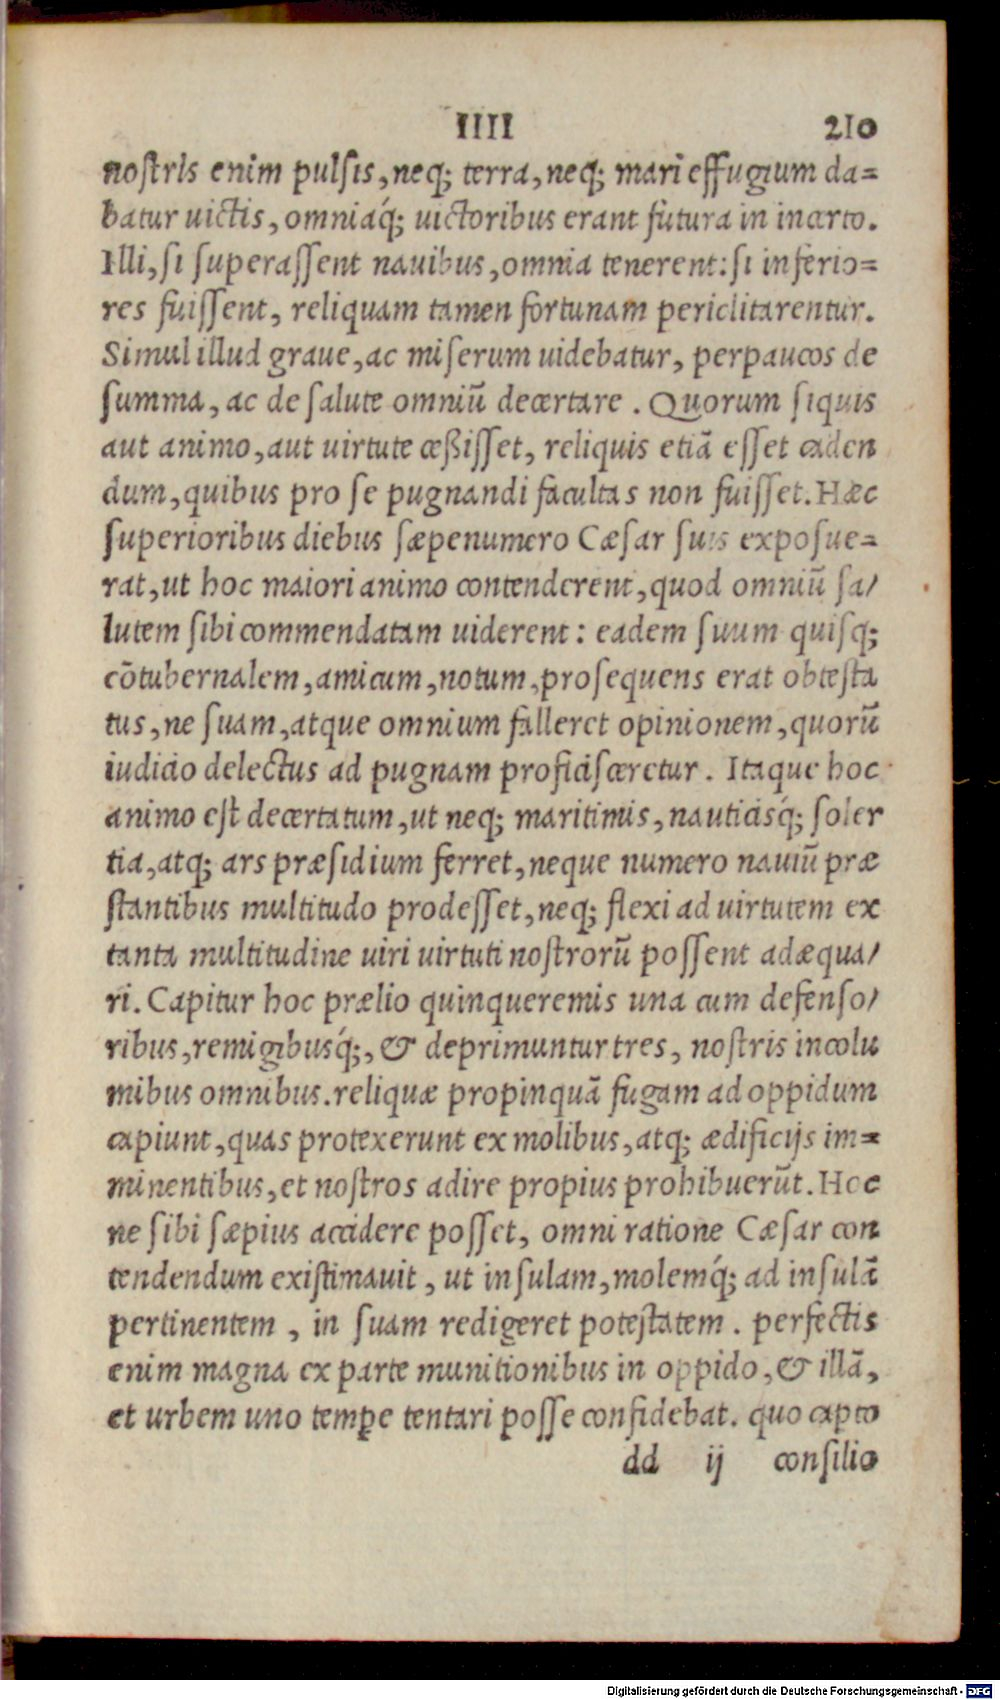 IIII 210
nostris enim pulsis, neq; terra, neq; mari effugium da=
batur uictis, omniaq́; uictoribus erant futura in incerto.
Illi, si superassent nauibus, omnia tenerent: si inferio=
res fuissent, reliquam tamen fortunam periclitarentur.
Simul illud graue, ac miserum uidebatur, perpaucos de
summa, ac de salute omniũ decertare. Quorum siquis
aut animo, aut uirtute ceßisset, reliquis etiã esset caden
dum, quibus pro se pugnandi facultas non fuisset. Hæc
superioribus diebus sæpenumero Cæsar suis exposue=
rat, ut hoc maiori animo contenderent, quod omniũ sa/
lutem sibi commendatam uiderent: eadem suum quisq;
cõtubernalem, amicum, notum, prosequens erat obtesta
tus, ne suam, atque omnium falleret opinionem, quorũ
iudicio delectus ad pugnam proficisceretur. Itaque hoc
animo est decertatum, ut neq; maritimis, nauticisq́; soler
tia, atq; ars præsidium ferret, neque numero nauiũ præ
stantibus multitudo prodesset, neq; flexi ad uirtutem ex
tanta multitudine uiri uirtuti nostrorũ possent adæqua/
ri. Capitur hoc prælio quinqueremis una cum defenso/
ribus, remigibusq́;, & deprimuntur tres, nostris incolu
mibus omnibus. reliquæ propinquã fugam ad oppidum
capiunt, quas protexerunt ex molibus, atq; ædificijs im=
minentibus, et nostros adire propius prohibuerũt. Hoc
ne sibi sæpius accidere posset, omni ratione Cæsar con
tendendum existimauit, ut insulam, molemq́; ad insulã
pertinentem, in suam redigeret potestatem. perfectis
enim magna ex parte munitionibus in oppido, & illã,
et urbem uno tempe tentari posse confidebat. quo capto
dd ij consilio
Digitalisierung gefördert durch die Deutsche Forschungsgemeinschaft - DFG